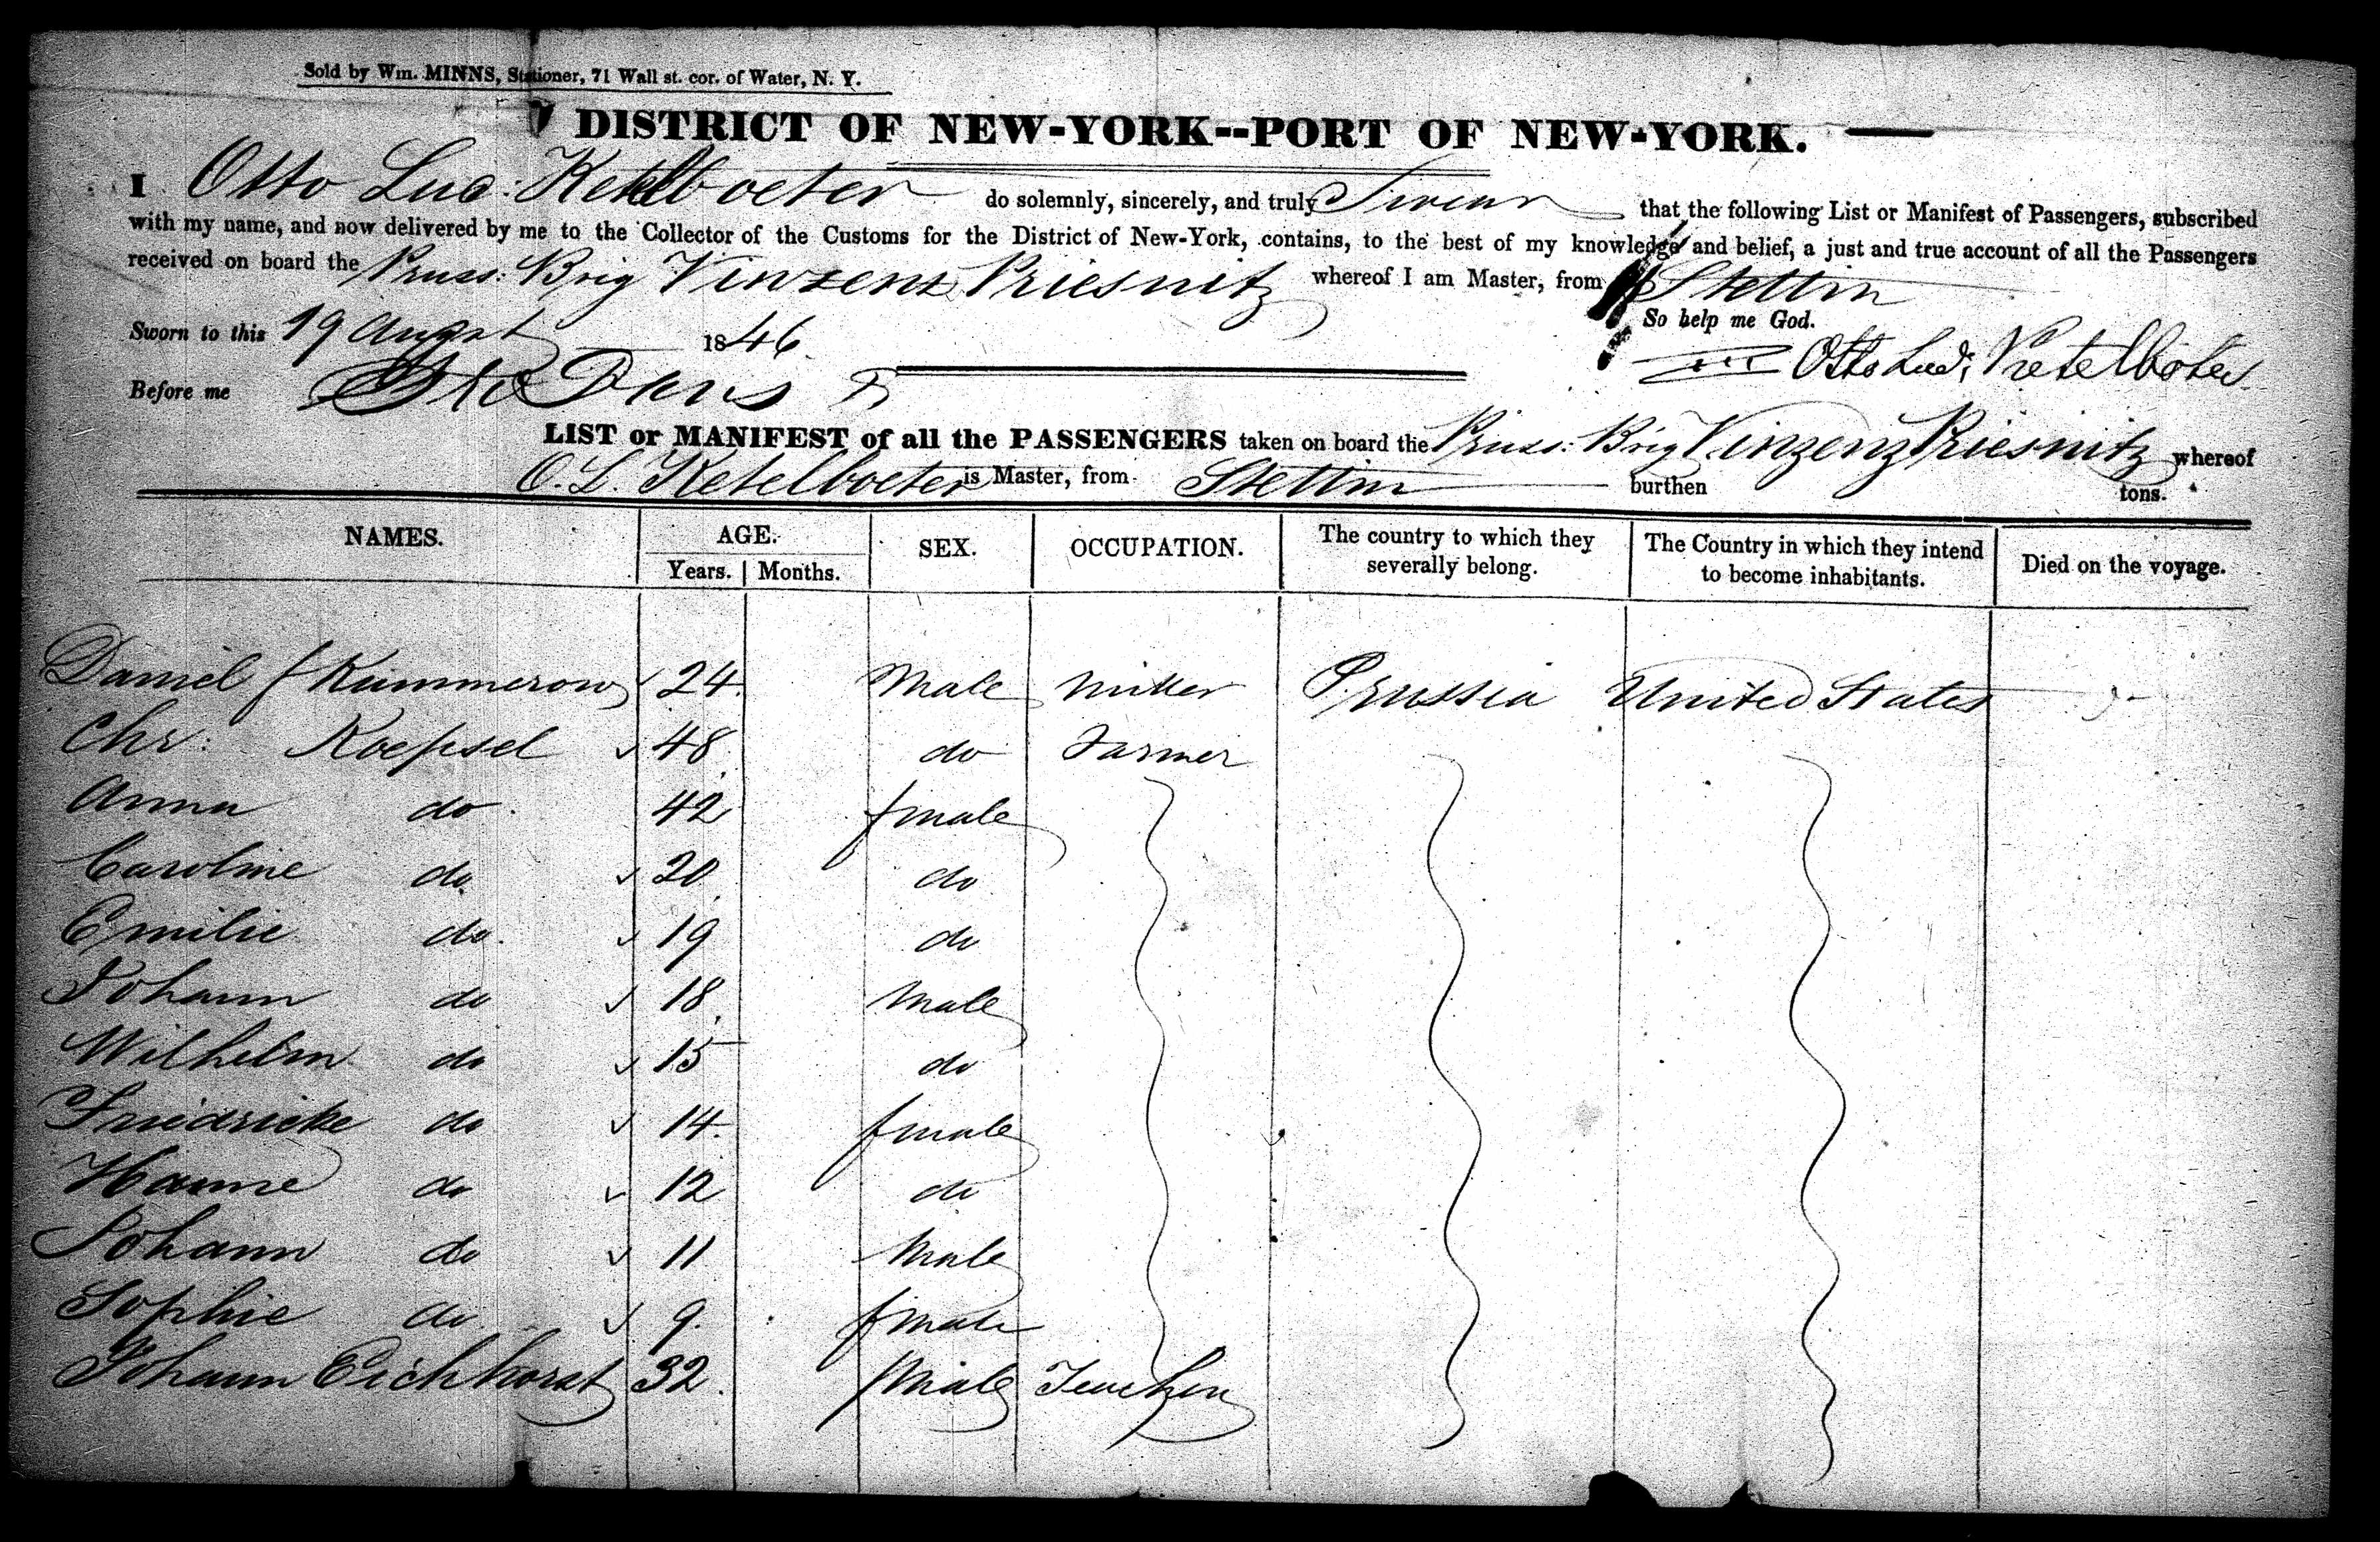 Sold by Wm. MINNS, Stationer, 71 Wall st. cor. of Water, N. Y.
DISTRICT OF NEW-YORK--PORT OF NEW-YORK.
I Otto Lud: Ketelboeter do solemnly, sincerely, and truly Swear that the following List or Manifest of Passengers, subscribed
with my name, and now delivered by me to the Collector of the Customs for the District of New-York, contains, to the best of my knowledge and belief, a just and true account of all the Passengers
received on board the Pruss: Brig Vinzenz Priesnitz whereof I am Master, from Stettin
So help me God.
Sworn to this 19 Augst 1846
Otto Lud: Ketelböter
Before me
LIST or MANIFEST of all the PASSENGERS taken on board the Pruss: Brig Vinzenz Priesnitz whereof
O. L. Ketelboeter is Master, from Stettin burthen tons.
NAMES. AGE. SEX. OCCUPATION. The country to which they severally belong. The Country in which they intend to become inhabitants. Died on the voyage.
Years. Months.
Daniel f Kummerow 24. Male miller Prussia United States
Chr: Koepsel 48 do Farmer
Anna do 42 fmale
Caroline do 20 do
Emilie do. 19 do
Johann do 18 Male
Wilhelm do 15 do
Friedricke do 14. fmale
Hanne do 12 do
Johann do 11 Male
Sophie do 9. fmale
Johann Eichhorst 32. Male